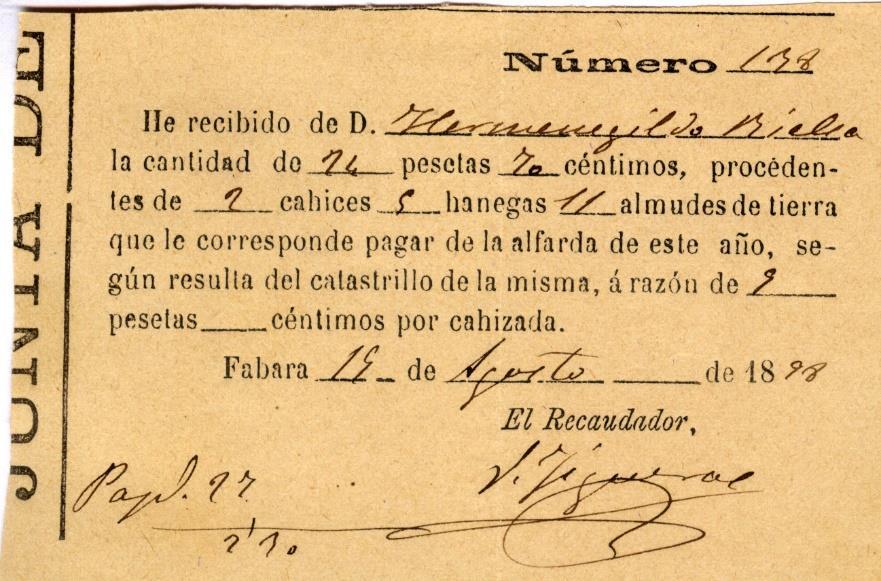 JUNTA DE
Número 138
He recibido de D. Hermenegildo Bielsa
la cantidad de 24 pesetas 70 céntimos, proceden-
tes de 2 cahices 5 hanegas 11 almudes de tierra
que le corresponde pagar de la alfarda de este año, se-
gún resulta del catastrillo de la misma, á razón de 9
pesetas céntimos por cahizada.
Fabara 15 de Agosto de 1898
El Recaudador,
Figueras
27
2'30